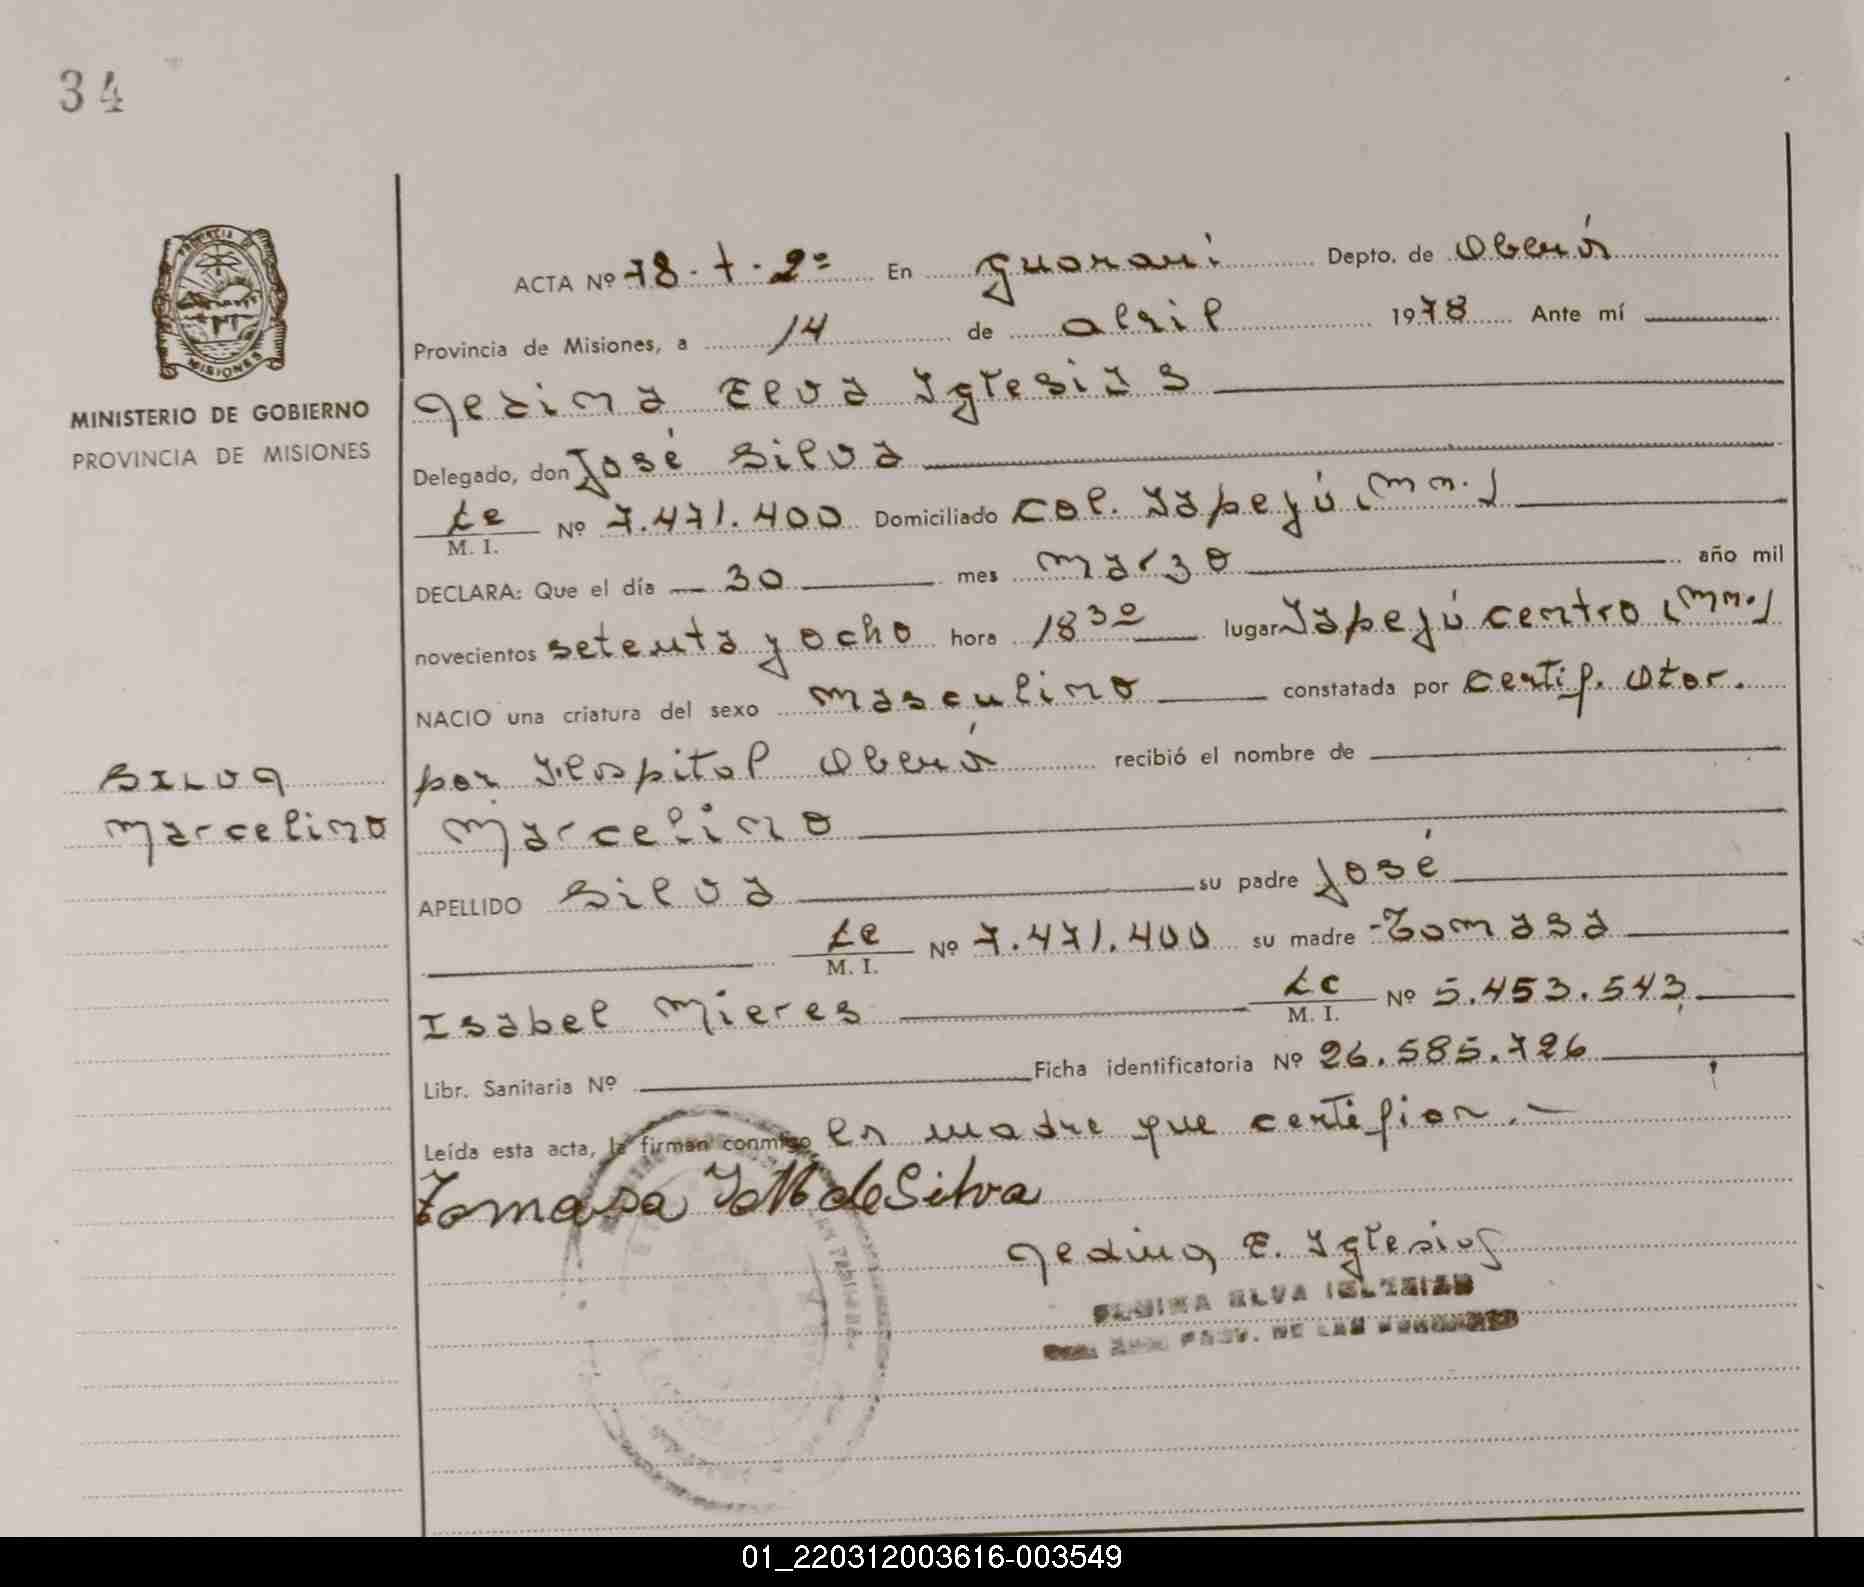 34
PROVINCIA DE
MISIONES
MINISTERIO DE GOBIERNO
PROVINCIA DE MISIONES
ACTA Nº 78. t. 2º En Guarani Depto. de Oberá
Provincia de Misiones, a 14 de abril 1978 Ante mí
Gedina Elva Iglesias
Delegado, don José Silva
LE M. I. Nº 7.471.400 Domiciliado Col. Yapeyú (Mns.)
DECLARA: Que el día 30 mes marzo año mil
novecientos setenta y ocho hora 18 30 lugar Yapeyú centro (Mns.)
NACIO una criatura del sexo masculino constatada por certif. otor.
por Hospital Oberá recibió el nombre de
SILVA
Marcelino
Marcelino
APELLIDO Silva su padre José
LE M. I. Nº 7.471.400 su madre Tomasa
Isabel Mieres LC M. I. Nº 5.453.543
Libr. Sanitaria Nº Ficha identificatoria Nº 26.585.726
Leída esta acta, la firman conmigo la madre que certifican.-
Tomasa I M de Silva
Gedina E. Iglesias
ELVA IGLESIAS
PROV. DE LAS PERSONAS
01_220312003616-003549